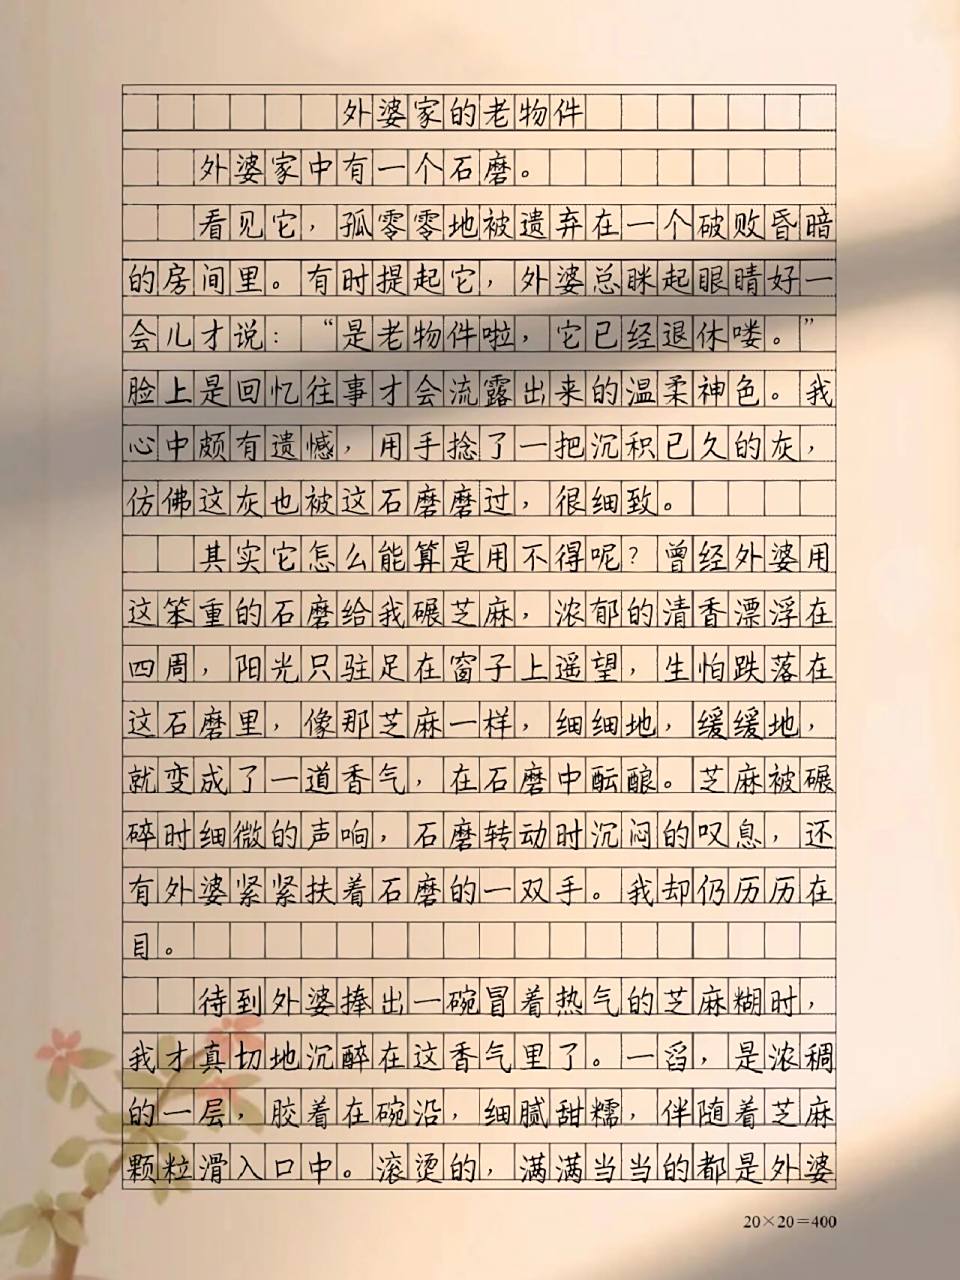 外婆家的老物件
外婆家中有一个石磨。
看见它，孤零零地被遗弃在一个破败昏暗
的房间里。有时提起它，外婆总眯起眼睛好一
会儿才说：“是老物件啦，它已经退休喽。”
脸上是回忆往事才会流露出来的温柔神色。我
心中颇有遗憾，用手捻了一把沉积已久的灰，
仿佛这灰也被这石磨磨过，很细致。
其实它怎么能算是用不得呢？曾经外婆用
这笨重的石磨给我碾芝麻，浓郁的清香漂浮在
四周，阳光只驻足在窗子上遥望，生怕跌落在
这石磨里，像那芝麻一样，细细地，缓缓地，
就变成了一道香气，在石磨中酝酿。芝麻被碾
碎时细微的声响，石磨转动时沉闷的叹息，还
有外婆紧紧扶着石磨的一双手。我却仍历历在
目。
待到外婆捧出一碗冒着热气的芝麻糊时，
我才真切地沉醉在这香气里了。一舀，是浓稠
的一层，胶着在碗沿，细腻甜糯，伴随着芝麻
颗粒滑入口中。滚烫的，满满当当的都是外婆
20×20=400